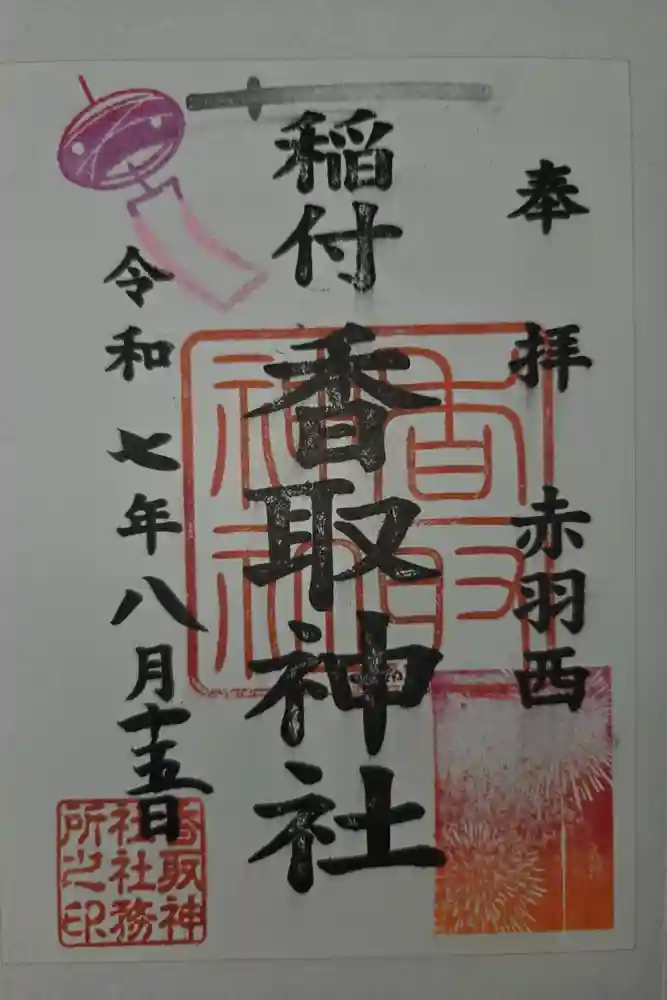 奉拝 赤羽西
稲付 香取神社
令和七年八月十五日
香取神社
香取神
社社務
所之印